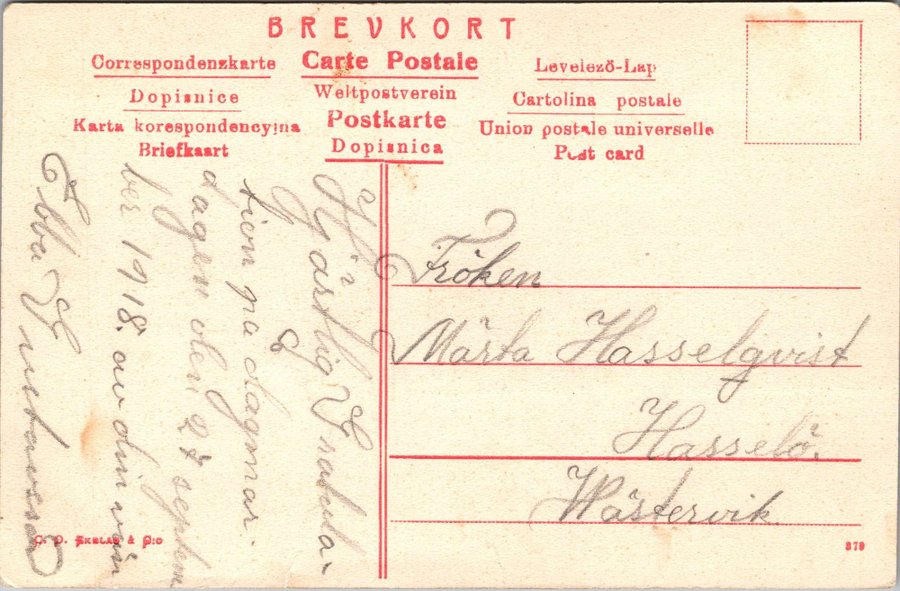 BREVKORT
Correspondenzkarte
Carte Postale
Levelezö-Lap
Dopisnice
Weltpostverein
Cartolina postale
Karta korespondencyjna
Postkarte
Union postale universelle
Briefkaart
Dopisnica
Post card
Hjärtlig Gratula-
tion på dagmar.
dagen den 27 septem
ber 1918. av din vän
Ebba Gustavsson
Fröken
Märta Hasselqvist
Hasselö.
Wästervik
C. O. Ekblad & Co
379